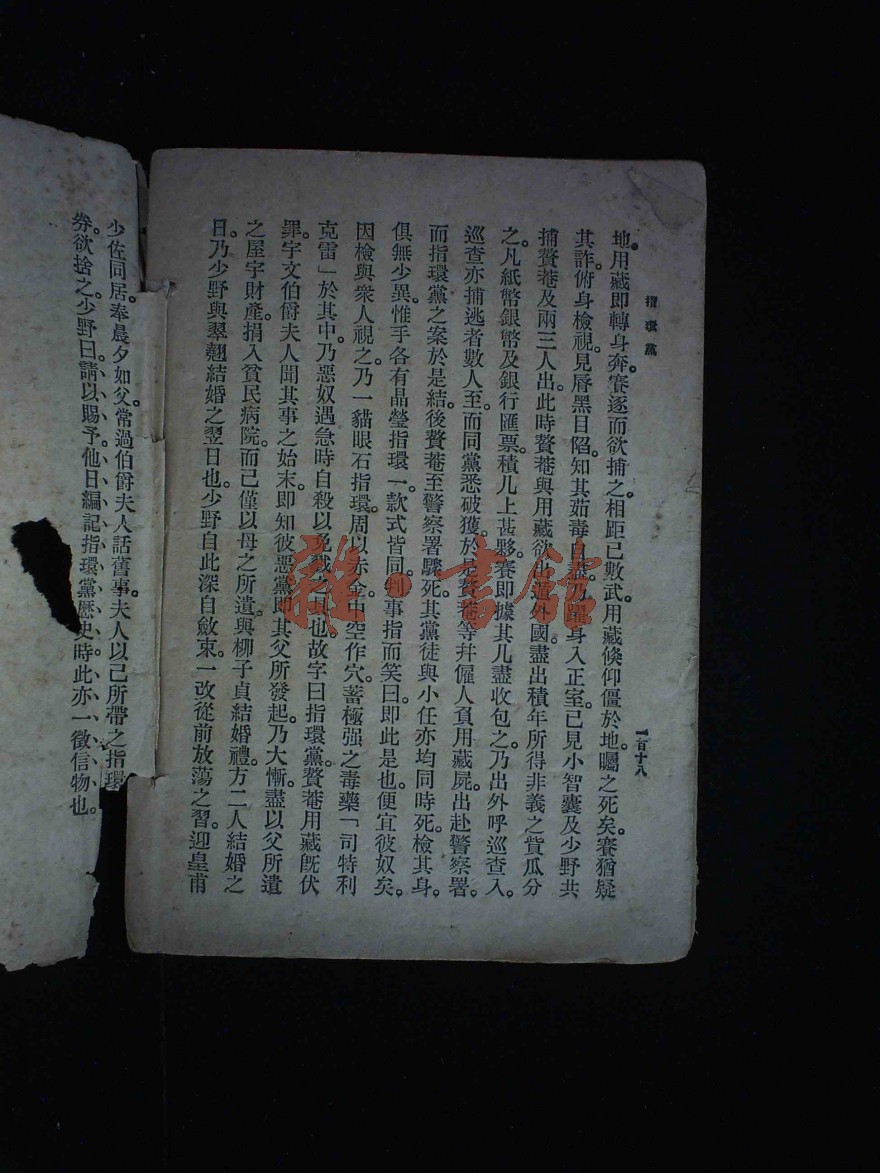 指環黨
一百十八
地。用藏即轉身奔。賽逐而欲捕之。相距已數武。用藏倏仰僵於地。矚之死矣。賽猶疑
其詐。俯身檢視。見唇黑目陷。知其茹毒自盡。乃躍身入正室。已見小智囊及少野共
捕贅菴及兩三人出。此時贅菴與用藏欲出遁外國。盡出積年所得非義之貲瓜分
之。凡紙幣銀幣及銀行匯票。積几上甚夥。賽即據其几盡收包之。乃出外呼巡查入。
巡查亦捕逃者數人至。而同黨悉破獲。於是贅菴等并僱人負用藏屍。出赴警察署。
而指環黨之案於是結。後贅菴至警察署驟死。其黨徒與小任亦均同時死。檢其身。
俱無少異。惟手各有晶瑩指環一。款式皆同。判事指而笑曰。即此是也。便宜彼奴矣。
因檢與衆人視之。乃一貓眼石指環。周以赤金。中空作穴。蓄極强之毒藥「司特利
克雷」於其中。乃惡奴遇急時自殺以免戮 具也。故字曰指環黨。贅菴用藏旣伏
罪。宇文伯爵夫人聞其事之始末。即知彼惡黨即其父所發起。乃大慚。盡以父所遺
之屋宇財產。捐入貧民病院。而已僅以母之所遺。與柳子貞結婚禮。方二人結婚之
日。乃少野與翠翹結婚之翌日也。少野自此深自斂束。一改從前放蕩之習。迎皇甫
少佐同居。奉晨夕如父。常過伯爵夫人話舊事。夫人以己所帶之指環
券。欲捨之。少野曰。請以賜予。他日編記指環黨歷史時。此亦一徵信物也。
雜·書館